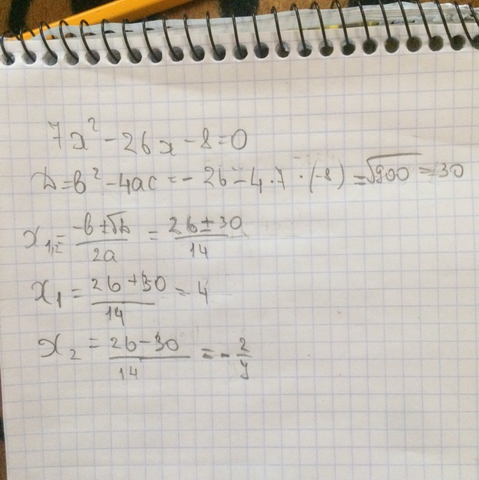 7x² - 26x - 8 = 0
D = b² - 4ac = - 26 - 4 · 7 · (-8) = √900 = 30
x₁,₂ = (-b ± √D) / 2a = (26 ± 30) / 14
x₁ = (26 + 30) / 14 = 4
x₂ = (26 - 30) / 14 = - 2/7